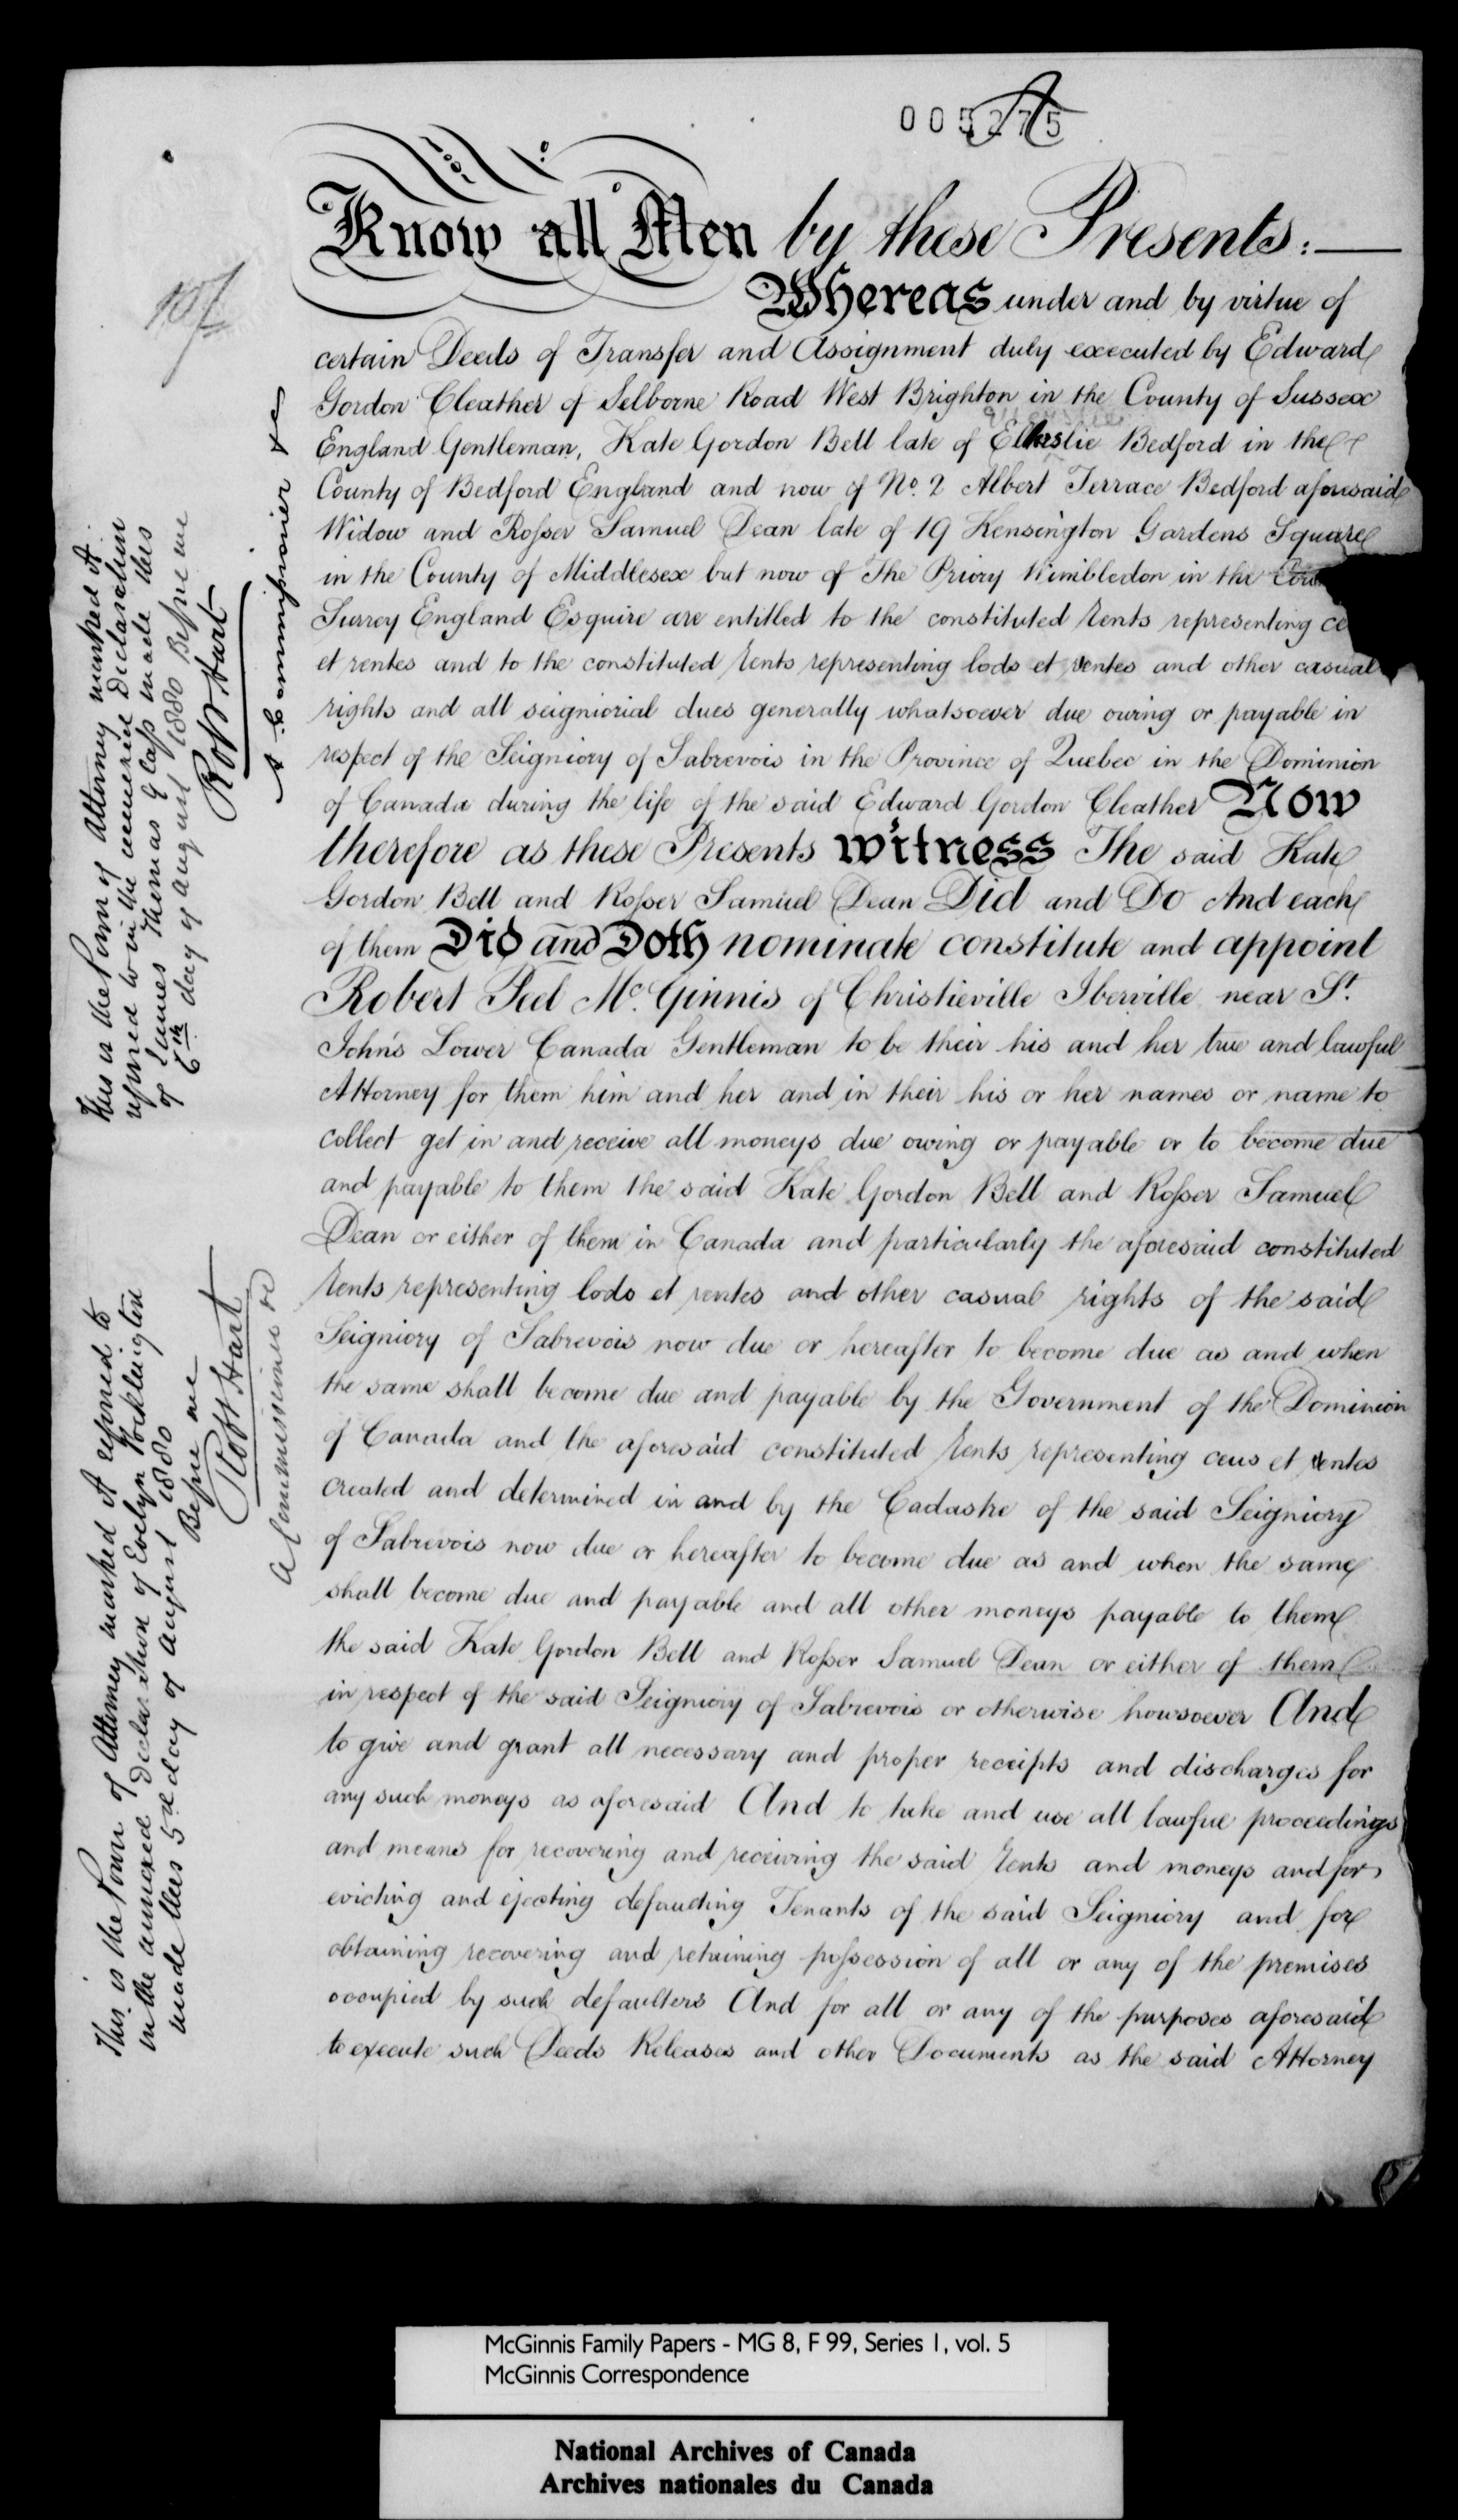 005275
A
10/
Know all Men by these Presents:—
Whereas under and by virtue of
certain Deeds of Transfer and Assignment duly executed by Edward
Gordon Cleather of Selborne Road West Brighton in the County of Sussex
England Gentleman, Kate Gordon Bell late of Ellerslie Bedford in the
County of Bedford England and now of No. 2 Albert Terrace Bedford aforesaid
Widow and Rosser Samuel Dean late of 19 Kensington Gardens Square
in the County of Middlesex but now of The Priory Wimbledon in the
Surrey England Esquire are entitled to the constituted rents representing
et rentes and to the constituted rents representing lods et ventes and other casual
rights and all seigniorial dues generally whatsoever due owing or payable in
respect of the Seigniory of Sabrevois in the Province of Quebec in the Dominion
of Canada during the life of the said Edward Gordon Cleather Now
therefore as these Presents witness The said Kate
Gordon Bell and Rosser Samuel Dean Did and Do And each
of them Did and Doth nominate constitute and appoint
Robert Peel Mc.Ginnis of Christieville Iberville near St.
John's Lower Canada Gentleman to be their his and her true and lawful
Attorney for them him and her and in their his or her names or name to
collect get in and receive all moneys due owing or payable or to become due
and payable to them the said Kate Gordon Bell and Rosser Samuel
Dean or either of them in Canada and particularly the aforesaid constituted
rents representing lods et ventes and other casual rights of the said
Seigniory of Sabrevois now due or hereafter to become due as and when
the same shall become due and payable by the Government of the Dominion
of Canada and the aforesaid constituted rents representing cens et rentes
created and determined in and by the Cadastre of the said Seigniory
of Sabrevois now due or hereafter to become due as and when the same
shall become due and payable and all other moneys payable to them
the said Kate Gordon Bell and Rosser Samuel Dean or either of them
in respect of the said Seigniory of Sabrevois or otherwise howsoever And
to give and grant all necessary and proper receipts and discharges for
any such moneys as aforesaid And to take and use all lawful proceedings
and means for recovering and receiving the said rents and moneys and for
evicting and ejecting defaulting Tenants of the said Seigniory and for
obtaining recovering and retaining possession of all or any of the premises
occupied by such defaulters And for all or any of the purposes aforesaid
to execute such Deeds Releases and other Documents as the said Attorney
This is the Power of Attorney marked A
referred to in the annexed Declaration
of James Thomas Cass made this
6th day of August 1880 Before me
Robt Hart
A Commissioner &c
This is the Power of Attorney marked A referred to
in the annexed Declaration of Evelyn Pocklington
made this 5th day of August 1880
Before me
Robt Hart
A Commissioner &c
McGinnis Family Papers - MG 8, F 99, Series 1, vol. 5
McGinnis Correspondence
National Archives of Canada
Archives nationales du Canada